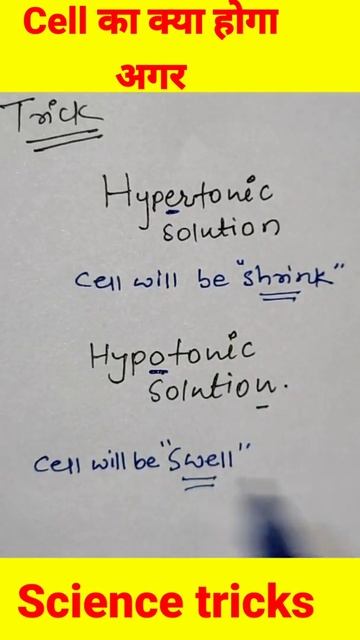 Cell का क्या होगा
अगर
Trick
Hypertonic
Solution
Cell will be "shrink"
Hypotonic
Solution.
Cell will be "Swell"
Science tricks